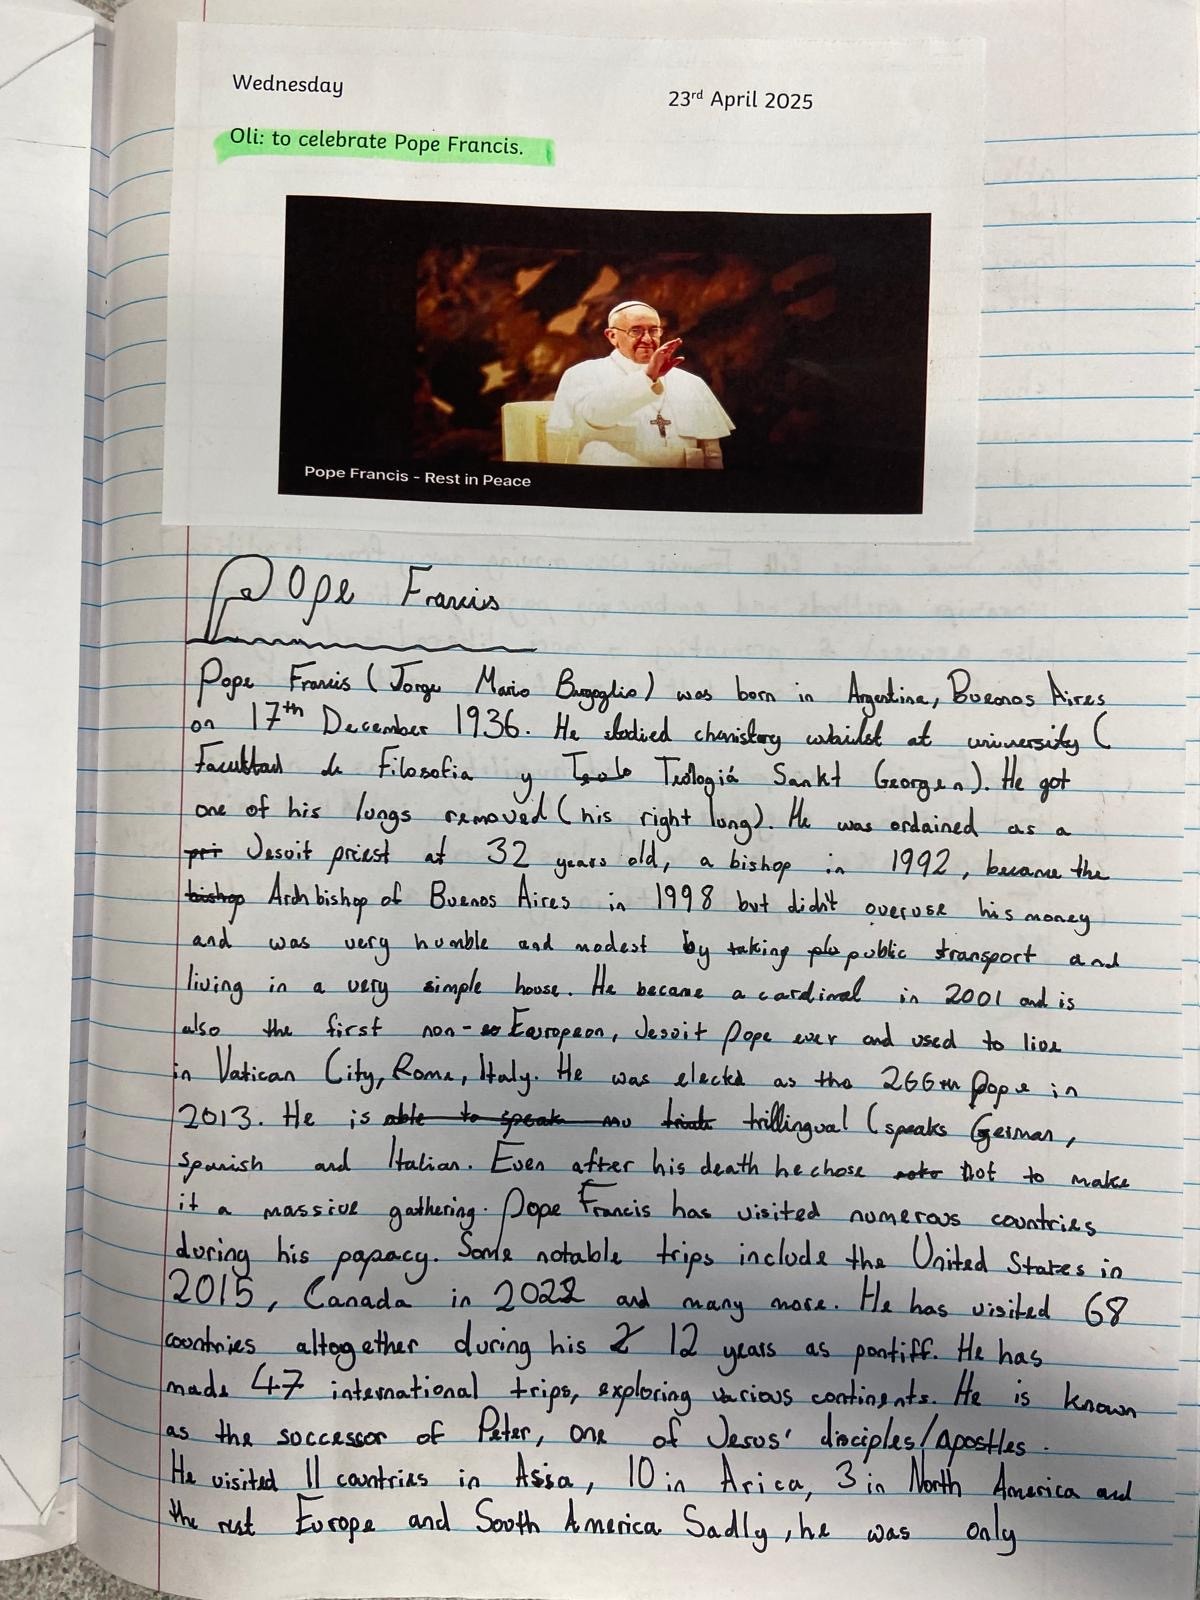 Wednesday
23rd April 2025
Oli: to celebrate Pope Francis.
Pope Francis - Rest in Peace
Pope Francis
Pope Francis (Jorge Mario Burgoglio) was born in Argentina, Buenos Aires
on 17th December 1936. He studied chemistry whilst at university (
Facultad de Filosofia y Teolo Teologiá Sankt Georgen). He got
one of his lungs removed (his right lung). He was ordained as a
pri Jesuit priest at 32 years old, a bishop in 1992, became the
bishop Archbishop of Buenos Aires in 1998 but didn't overuse his money
and was very humble and modest by taking plo public transport and
living in a very simple house. He became a cardinal in 2001 and is
also the first non-eo European, Jesuit Pope ever and used to live
in Vatican City, Rome, Italy. He was elected as the 266th Pope in
2013. He is able to speak mu trillingual (speaks German,
Spanish and Italian. Even after his death he chose not to make
it a massive gathering. Pope Francis has visited numerous countries
during his papacy. Some notable trips include the United States in
2015, Canada in 2022 and many more. He has visited 68
countries altogether during his 2 12 years as pontiff. He has
made 47 international trips, exploring various continents. He is known
as the successor of Peter, one of Jesus' disciples/apostles.
He visited 11 countries in Assia, 10 in Arica, 3 in North America and
the rest Europe and South America Sadly, he was only